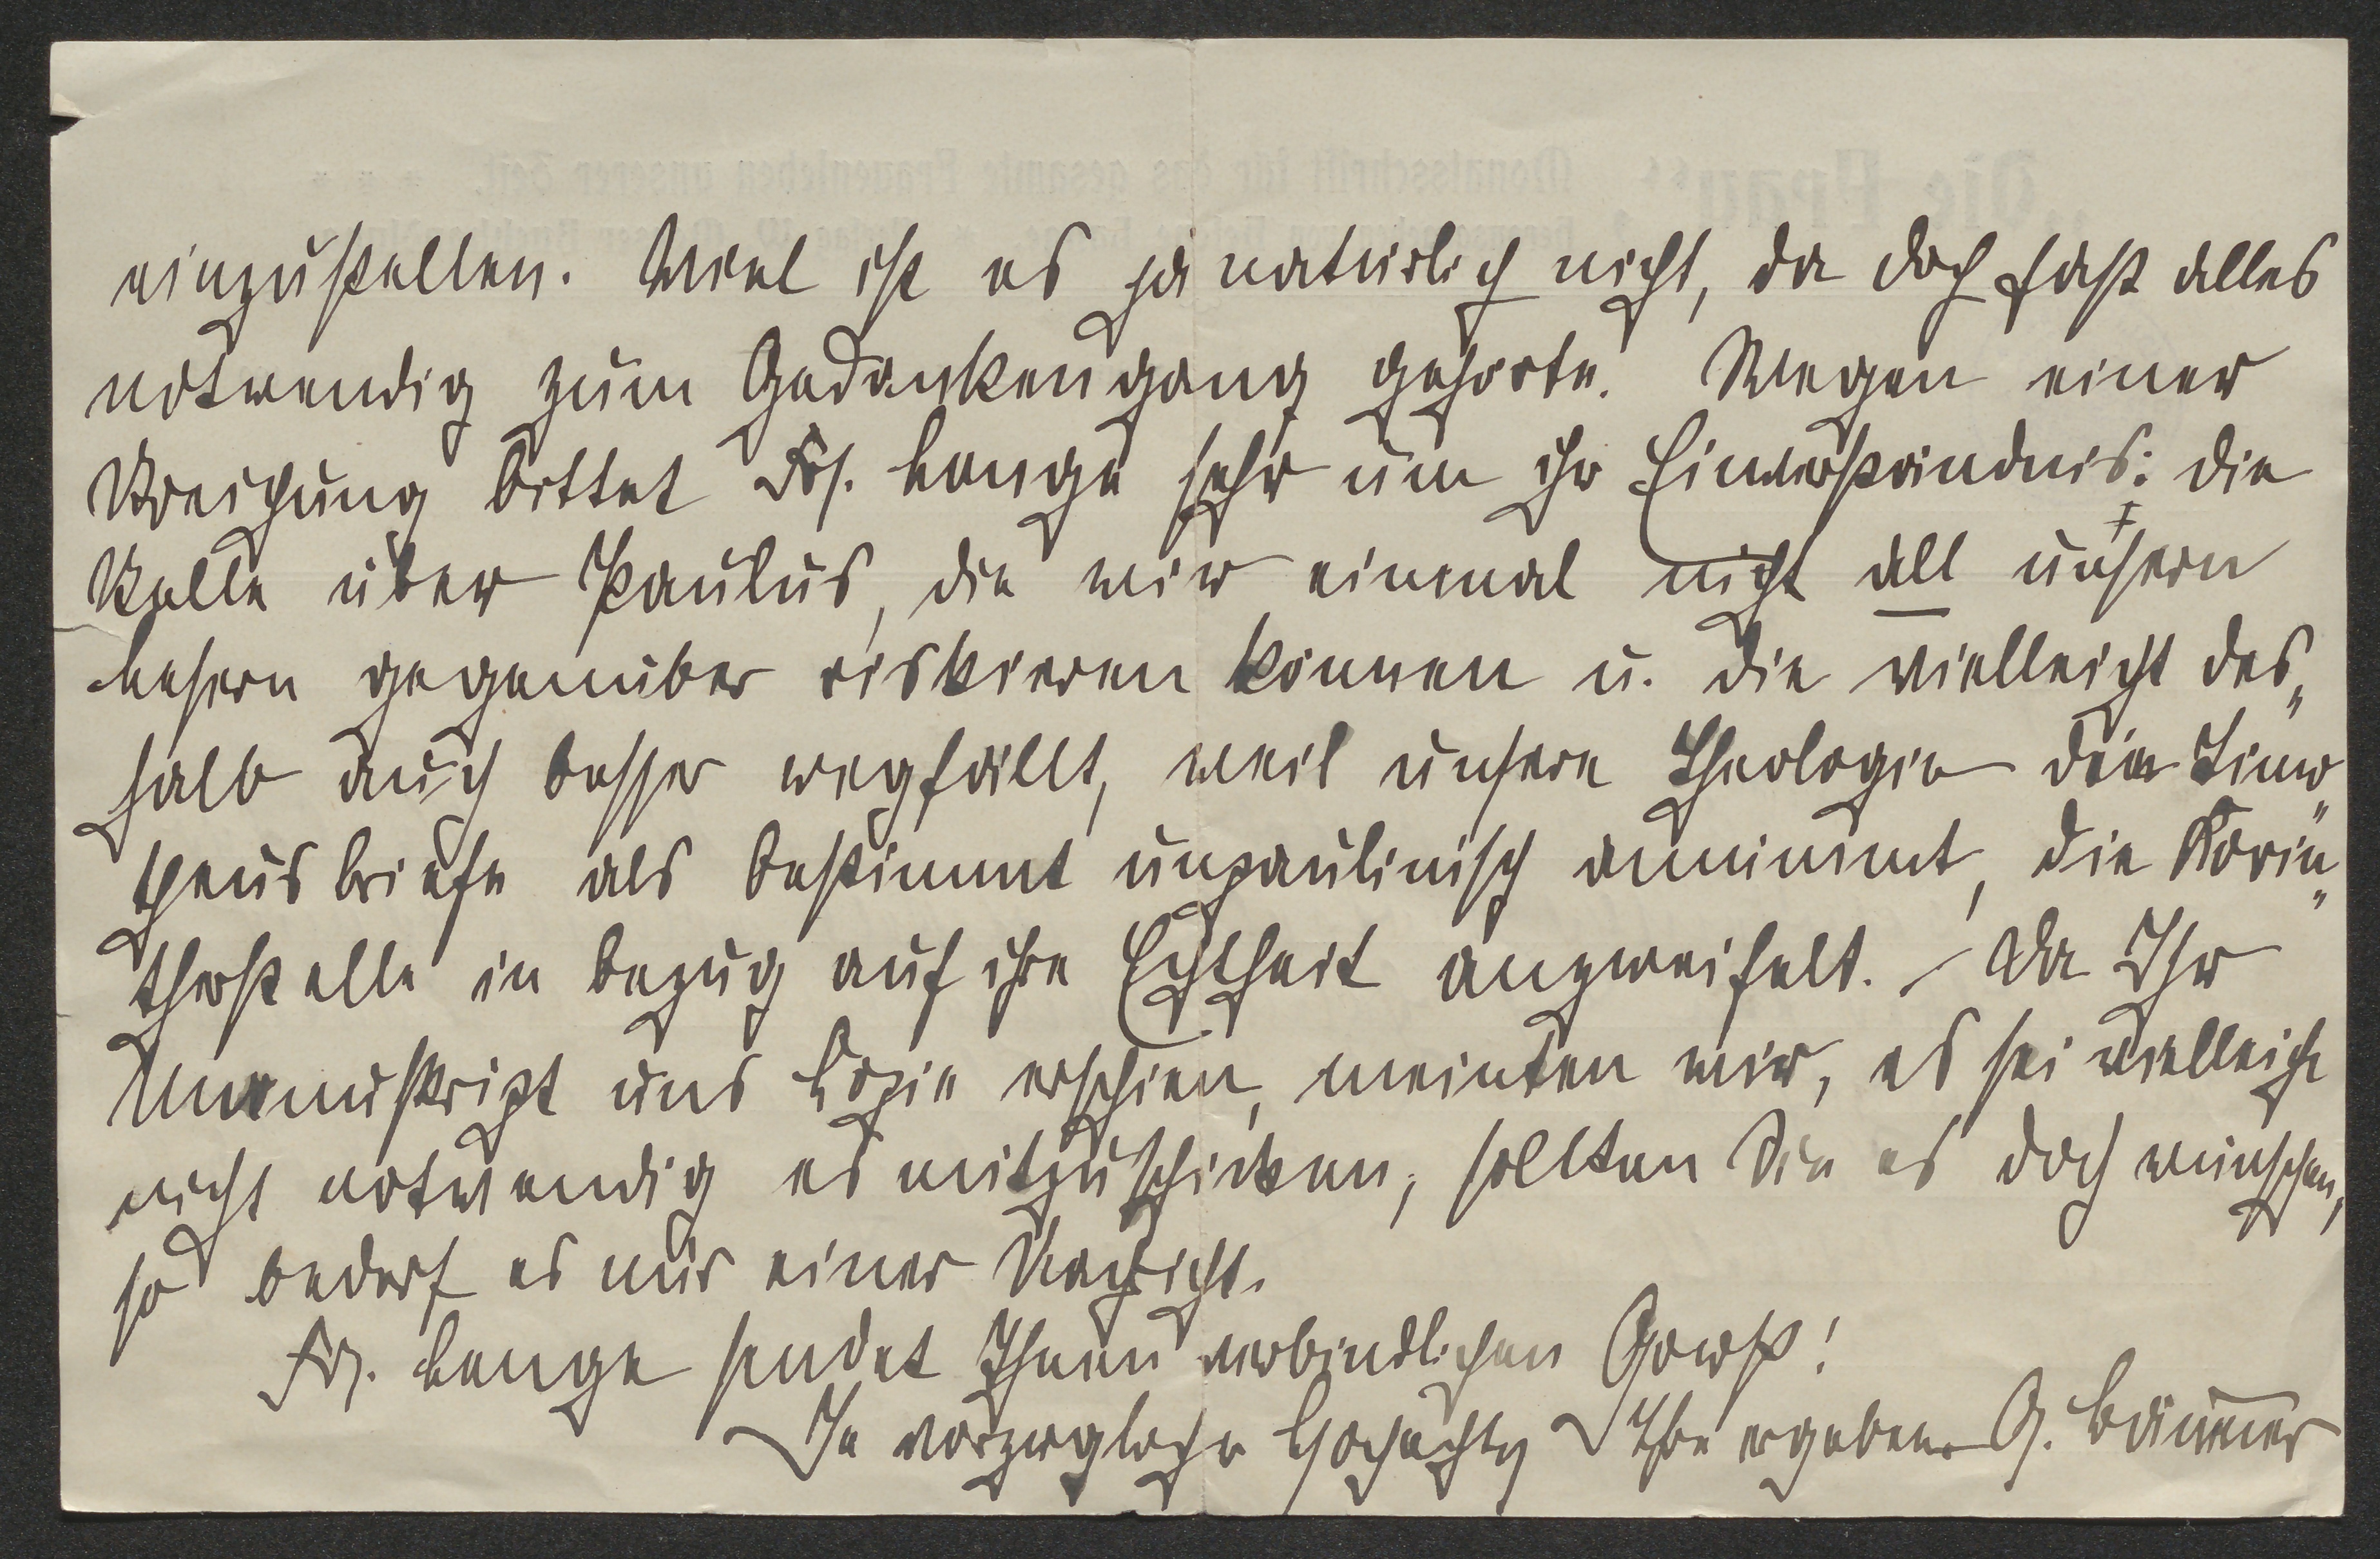 einzustellen. Viel ist es ja natürlich nicht, da doch fast alles
notwendig zum Gedankengang gehörte. Wegen einer
Streichung bittet Frl. Lange sehr um ihr Einverständnis: die
Stelle über Paulus, die wir einmal nicht all unsern
Lesern gegenüber riskieren können u. die vielleicht des„
halb auch besser wegfällt, weil unsere Theologie die Timo„
theusbriefe als bestimmt unpaulinisch annimmt, die Korin„
therstelle in bezug auf ihre Echtheit anzweifelt. – Da Ihr
Manuskript uns Copie erschien, meinten wir, es sei vielleicht
nicht notwendig es mitzuschicken, sollten Sie es doch wünschen,
so bedarf es nur einer Nachricht.
Frl. Lange sendet Ihnen verbindlichen Gruß!
In vorzüglicher Hochachtg Ihre ergebene G. Bäumer